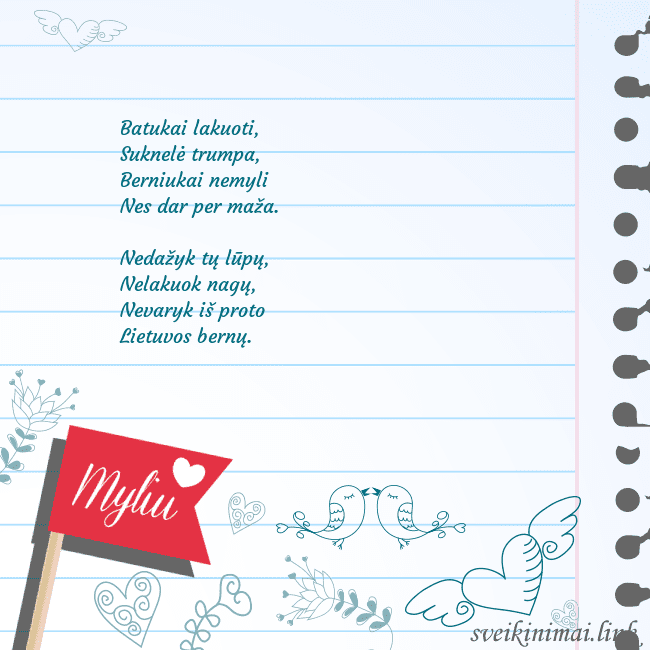 Batukai lakuoti,
Suknelė trumpa,
Berniukai nemyli
Nes dar per maža.
Nedažyk tų lūpų,
Nelakuok nagų,
Nevaryk iš proto
Lietuvos bernų.
Myliu
sveikinimai.link